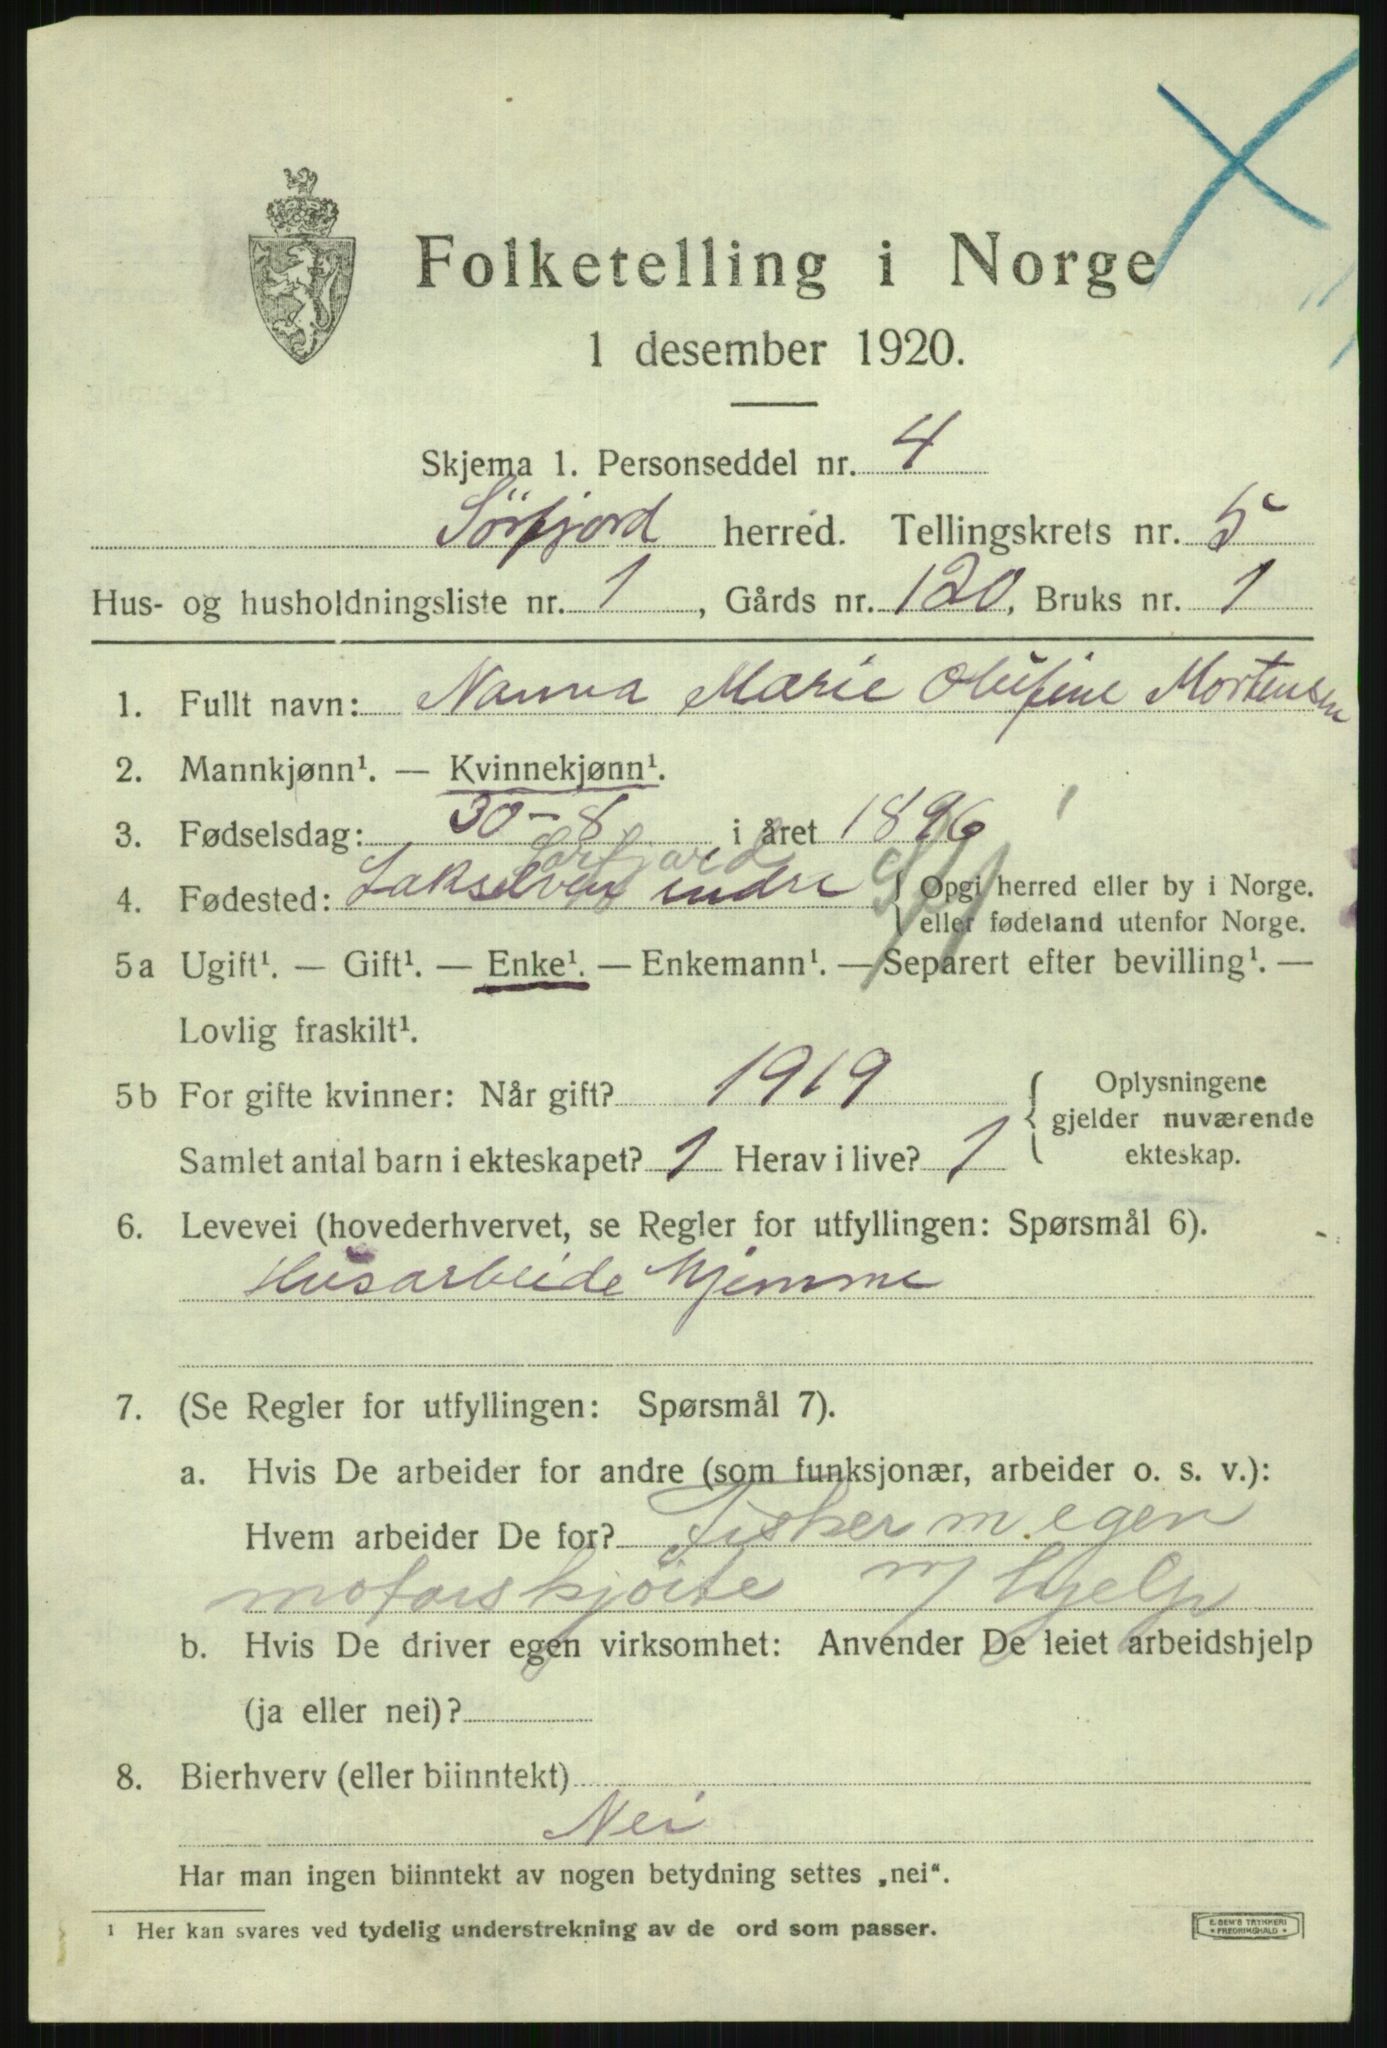 Folketelling i Norge
1 desember 1920.
Skjema 1. Personseddel nr. 4
Sörfjord herred. Tellingskrets nr. 5
Hus- og husholdningsliste nr. 1, Gårds nr. 120, Bruks nr. 1
1. Fullt navn: Nanna Marie Olufine Mortensen
2. Mannkjønn¹. — Kvinnekjønn¹.
3. Fødselsdag: 30-8 i året 1896
Sørfjord
4. Fødested: Lakselven indre { Opgi herred eller by i Norge.
eller fødeland utenfor Norge.
5a Ugift¹. — Gift¹. — Enke¹. — Enkemann¹. — Separert efter bevilling¹. —
Lovlig fraskilt¹.
5b For gifte kvinner: Når gift? 1919
Samlet antal barn i ekteskapet? 1 Herav i live? 1
{ Oplysningene
gjelder nuværende
ekteskap.
6. Levevei (hovederhvervet, se Regler for utfyllingen: Spørsmål 6).
Husarbeide hjemme
7. (Se Regler for utfyllingen: Spørsmål 7).
a. Hvis De arbeider for andre (som funksjonær, arbeider o. s. v.):
Hvem arbeider De for? Fisker m. egen
motorskjöite m/ hjelp
b. Hvis De driver egen virksomhet: Anvender De leiet arbeidshjelp
(ja eller nei)?
8. Bierhverv (eller biinntekt)
Nei
Har man ingen biinntekt av nogen betydning settes „nei“.
¹ Her kan svares ved tydelig understrekning av de ord som passer.
E. SEM'S TRYKKERI
FREDRIKSHALD